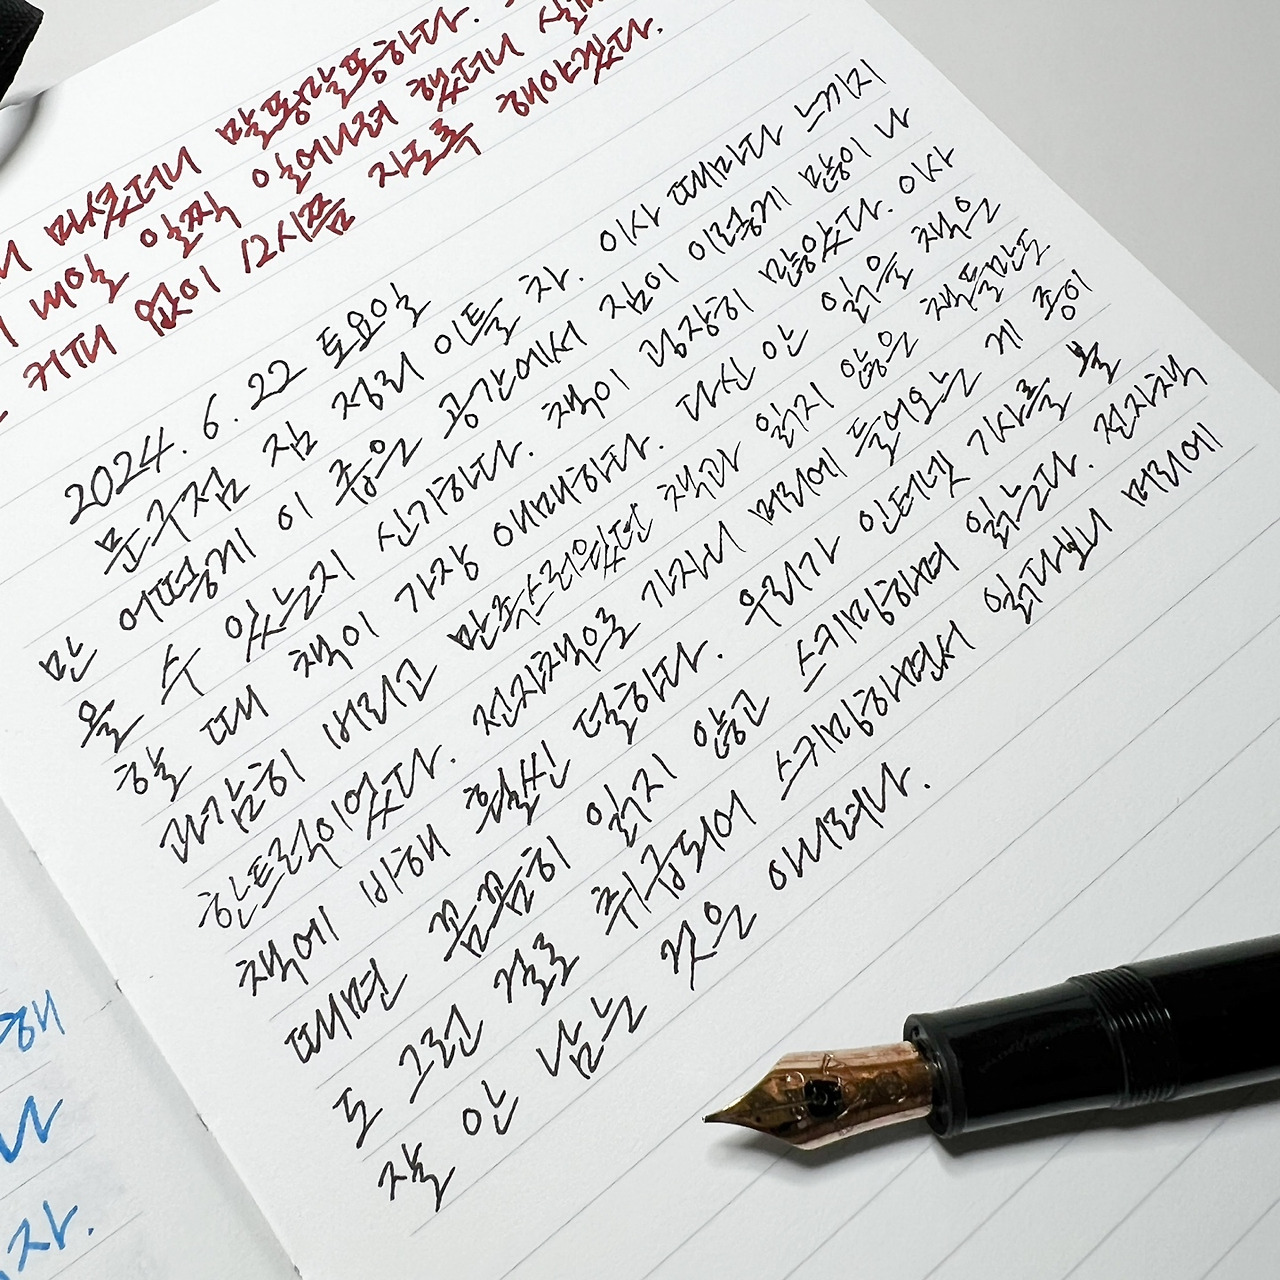 마셨더니 말똥말똥하다.
내일 일찍 일어나려 했더니
커피 없이 12시쯤 자도록 해야겠다.
2024. 6. 22 토요일
문구점 짐 정리 이틀 차. 이사 때마다 느끼지
만 어떻게 이 좁은 공간에서 짐이 이렇게 많이 나
올 수 있는지 신기하다. 책이 굉장히 많았다. 이사
할 때 책이 가장 애매하다. 다신 안 읽을 책은
과감히 버리고 만족스러웠던 책과 읽지 않은 책들만도
한트럭이었다. 전자책으로 가자니 머리에 들어오는 게 종이
책에 비해 훨씬 덜하다. 우리가 인터넷 기사를 볼
때면 꼼꼼히 읽지 않고 스키밍하며 읽는다. 전자책
도 그런 걸로 취급되어 스키밍하면서 읽다보니 머리에
잘 안 남는 것은 아니려나.
해
자.